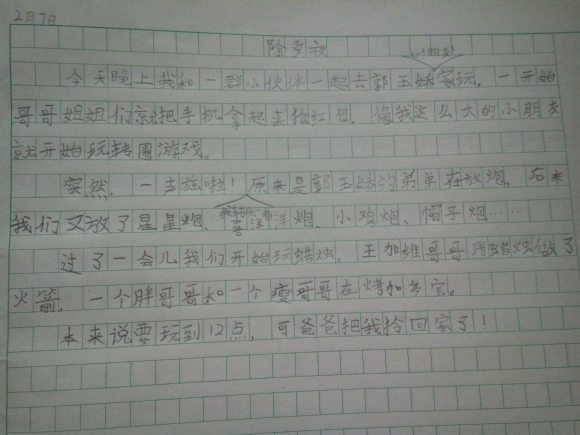 2月7日
除夕夜
今天晚上我和一群小伙伴一起去郭玉婧家玩，一开始
哥哥姐姐们就把手机拿起来抢红包，像我这么大的小朋友
就开始玩转圈游戏。
突然，一当啦！原来是郭玉婧的弟弟在放炮，后来
我们又放了星星炮、喜洋洋炮、小鸡炮、帽子炮……
过了一会儿我们开始玩蜡烛，王加维哥哥用蜡烛做了
火箭，一个胖哥哥和一个瘦哥哥在烤加多宝。
本来说要玩到12点，可爸爸把我拎回家了！